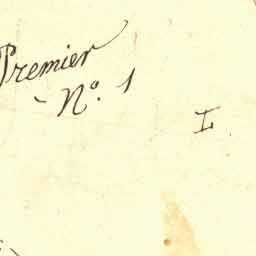 Premier
N.° 1
L